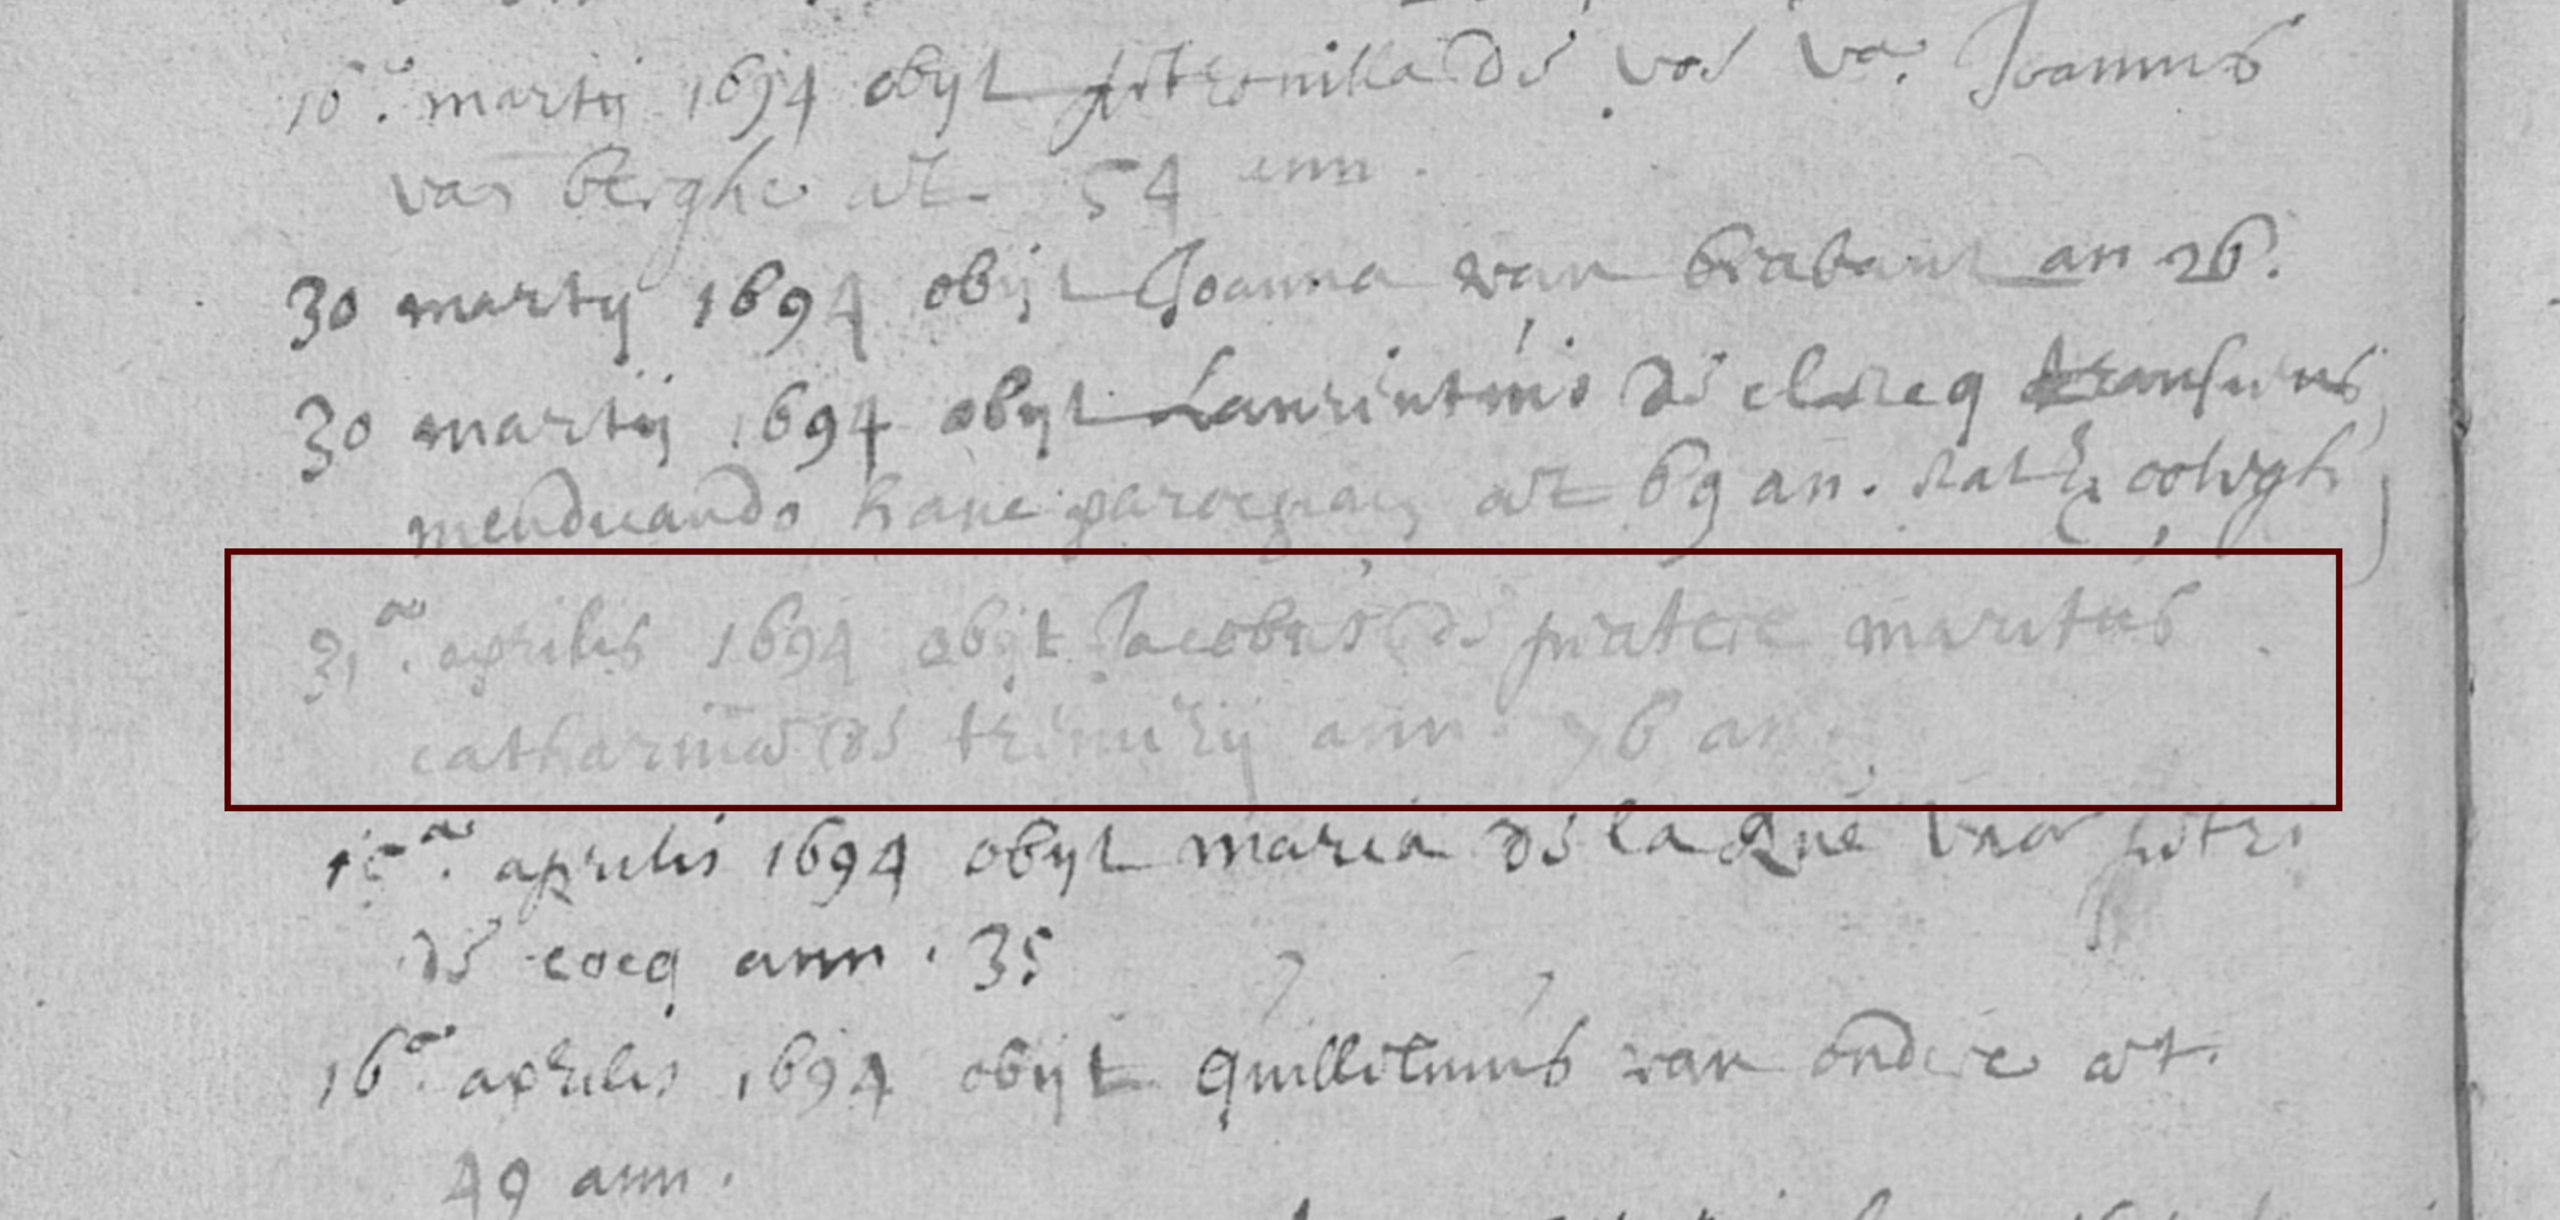 16a. martij 1694 obyt petronilla de vos va. Joannis
van berghe æt. 54 ann.
30 martij 1694 obijt Joanna van brabant an 26.
30 martij 1694 obyt Laurentius de clercq transiens
mendicando hanc parochiam æt 69 an.
3a. aprilis 1694 obijt Jacobus de pratere maritus
catharinæ de ann. 76 an.
10a. aprilis 1694 obyt maria de la Rue uxor petri
de cocq ann. 35
16a. aprilis 1694 obijt guillielmus van ondere æt.
49 ann.